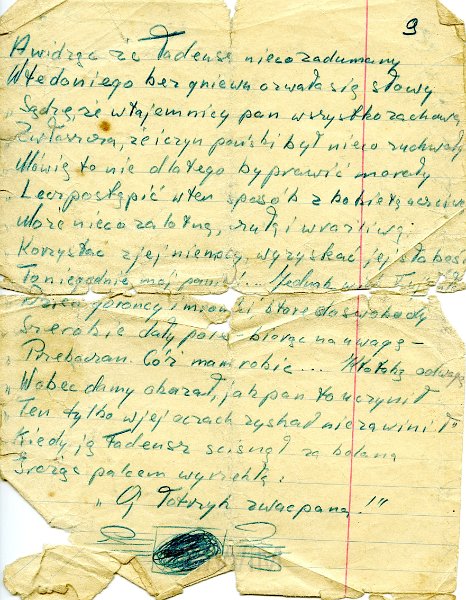 9
A widząc że Tadeusz nieco zadumany
Wtedy do niego bez gniewu ozwała się słowy
„Sądzę, że w tajemnicy pan wszystko zachowa,
Zwłaszcza, że i czyn pański był nieco zuchwały
Mówię to nie dlatego by prawić morały
„Lecz postąpić w ten sposób z kobietą uczciwą
Może nieco zalotną, czułą i wrażliwą
„Korzystać z jej niemocy, wyzyskać jej słabość
To niegodnie mój panie!... Jednak
gorący i swobody
Szerokie dały pole - biorąc na uwagę -
„Przebaczam. Cóż mam robić...
„Wobec damy okazał, jak pan to uczynił
„Ten tylko w jej oczach zyskał nie zawinił"
Kiedy ją Tadeusz ścisnął za kolana
Grożąc palcem wyrzekła:
„Oj łotrzyk z waćpana!!"